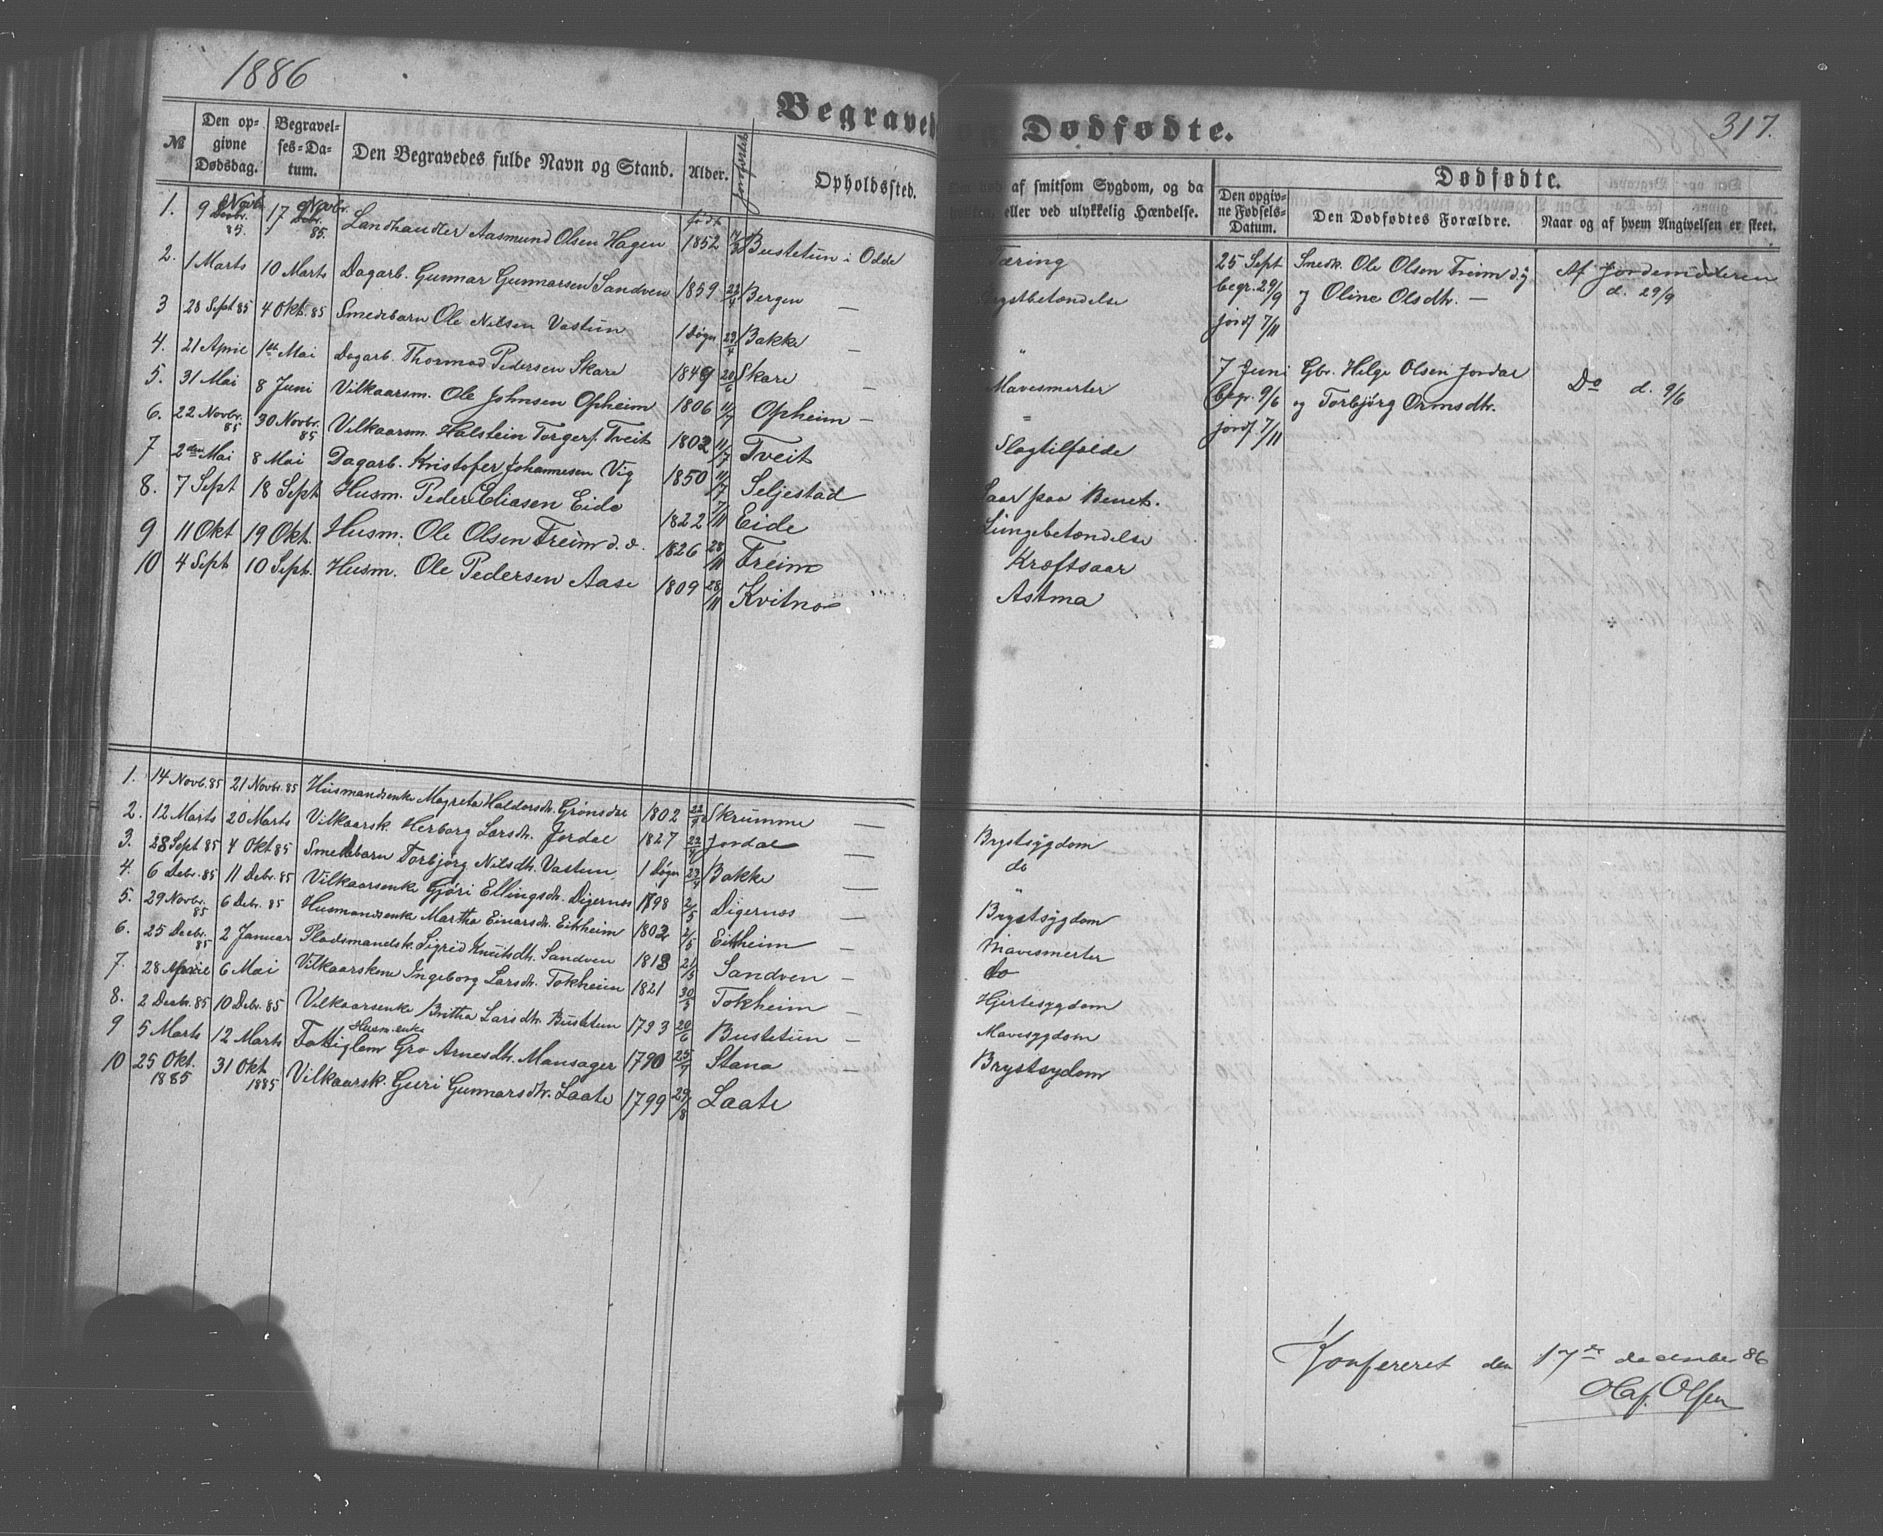 1886
317.
Begravede
Dødfødte.
№
Den op-
givne
Dødsdag.
Begravel-
ses-Da-
tum.
Den Begravedes fulde Navn og Stand.
Alder.
Jordfæstet
Opholdssted.
af smitsom Sygdom, og da
eller ved ulykkelig Hændelse.
Dødfødte.
Den opgiv-
ne Fødsels-
Datum.
Den Dødfødtes Forældre.
Naar og af hvem Angivelsen er skeet.
1. 9 Novbr. 85 17 Novbr. 85. Landhandler Aasmund Olsen Hagen født 1852 Bustetun i Odde Tæring
2. 1 Marts 10 Marts Dagarb. Gunnar Gunnarsen Sandven 1859 22/4 Bergen — Brystbetændelse
3 28 Sept 85 4 Okt. 85 Smedebarn Ole Nilsen Vastun 1 Døgn 23/4 Bakke — "
4. 21 April 1ste Mai Dagarb. Thormod Pedersen Skare 1849 20/6 Skare — Mavesmerter
5. 31 Mai 8 Juni Vilkaarsm. Ole Johnsen Opheim 1806 11/7 Opheim — "
6. 22 Novbr. 85 30 Novbr. 85 Vilkaarsm. Halstein Torgers. Tveit 1802 11/7 Tveit Slagtilfælde
7. 2den Mai 8 Mai Dagarb. Kristofer Johannesen Vig 1850 11/7 Seljestad Saar paa Benet.
8. 7 Sept 18 Sept Husm. Peder Eliasen Eide 1822 7/11 Eide Lungebetændelse
9 11 Okt 19 Okt. Husm. Ole Olsen Freim d. e. 1826 28/11 Freim Kræftsaar
10 4 Sept 10 Sept. Husm. Ole Pedersen Aase 1809 28/11 Kvitno Astma
25 Sept
begr. 29/9
jordf 7/11
Smedk. Ole Olsen Freim d. y
og Oline Olsdtr. —
Af Jordemoderen
d. 29/9
7 Juni
begr. 9/6
jordf 7/11
Gbr. Helge Olsen Jordal
og Torbjørg Ormsdtr.
Do d. 9/6
1. 14 Novb. 85 21 Novbr. 85 Husmandsenke Magreta Haldorsdtr. Grønsdal 1802 22/4 Skrumme — Brystsygdom
2. 12 Marts 20 Marts Vilkaarsk. Herborg Larsdtr. Jordal 1827 22/4 Jordal — do
3. 28 Sept 85 4 Okt 85 Smedebarn Torbjørg Nilsdtr. Vastun 1 Døgn 23/4 Bakke — "
4. 6 Debr. 85 11 Debr. 85 Vilkaarsenke Gjøri Ellingsdtr. Digernes 1798 2/5 Digernes — Brystsygdom
5. 29 Novbr. 85 6 Debr. 85 Husmandsenke Martha Einarsdtr. Eitheim 1802 2/5 Eitheim — Mavesmerter
6. 25 Decbr. 85 2 Januar Pladsmandsk. Sigrid Knutsdtr. Sandven 1813 21/5 Sandven — do
7. 28 April 6 Mai Vilkaarskone Ingeborg Larsdtr. Tokheim 1821 30/5 Tokheim — Hjertesygdom
8. 2 Decbr. 85 10 Debr. 85 Vilkaarsenke Britha Larsdtr. Bustetun 1793 20/6 Bustetun — Mavesygdom
9 5 Marts 12 Marts Husm. enke Fattiglem Gro Arnesdtr. Mansager 1790 25/7 Stana — Brystsydom
10 25 Okt. 1885 31 Okt 1885 Vilkaarsk. Guri Gunnarsdtr. Laate 1799 29/8 Laate
Konfereret den 17de december 86
Olaf. Olsen